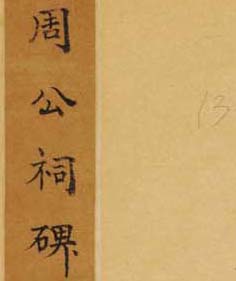 周公祠碑
13